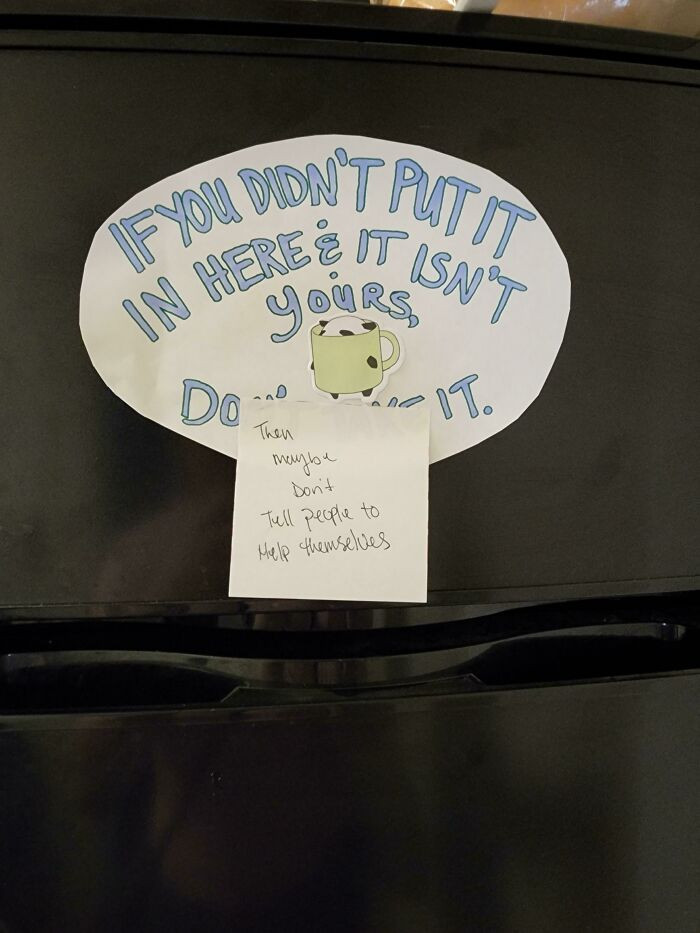 IF YOU DIDN'T PUT IT
IN HERE & IT ISN'T
YOURS,
IT.
Then
maybe
Don't
Tell people to
Help themselves